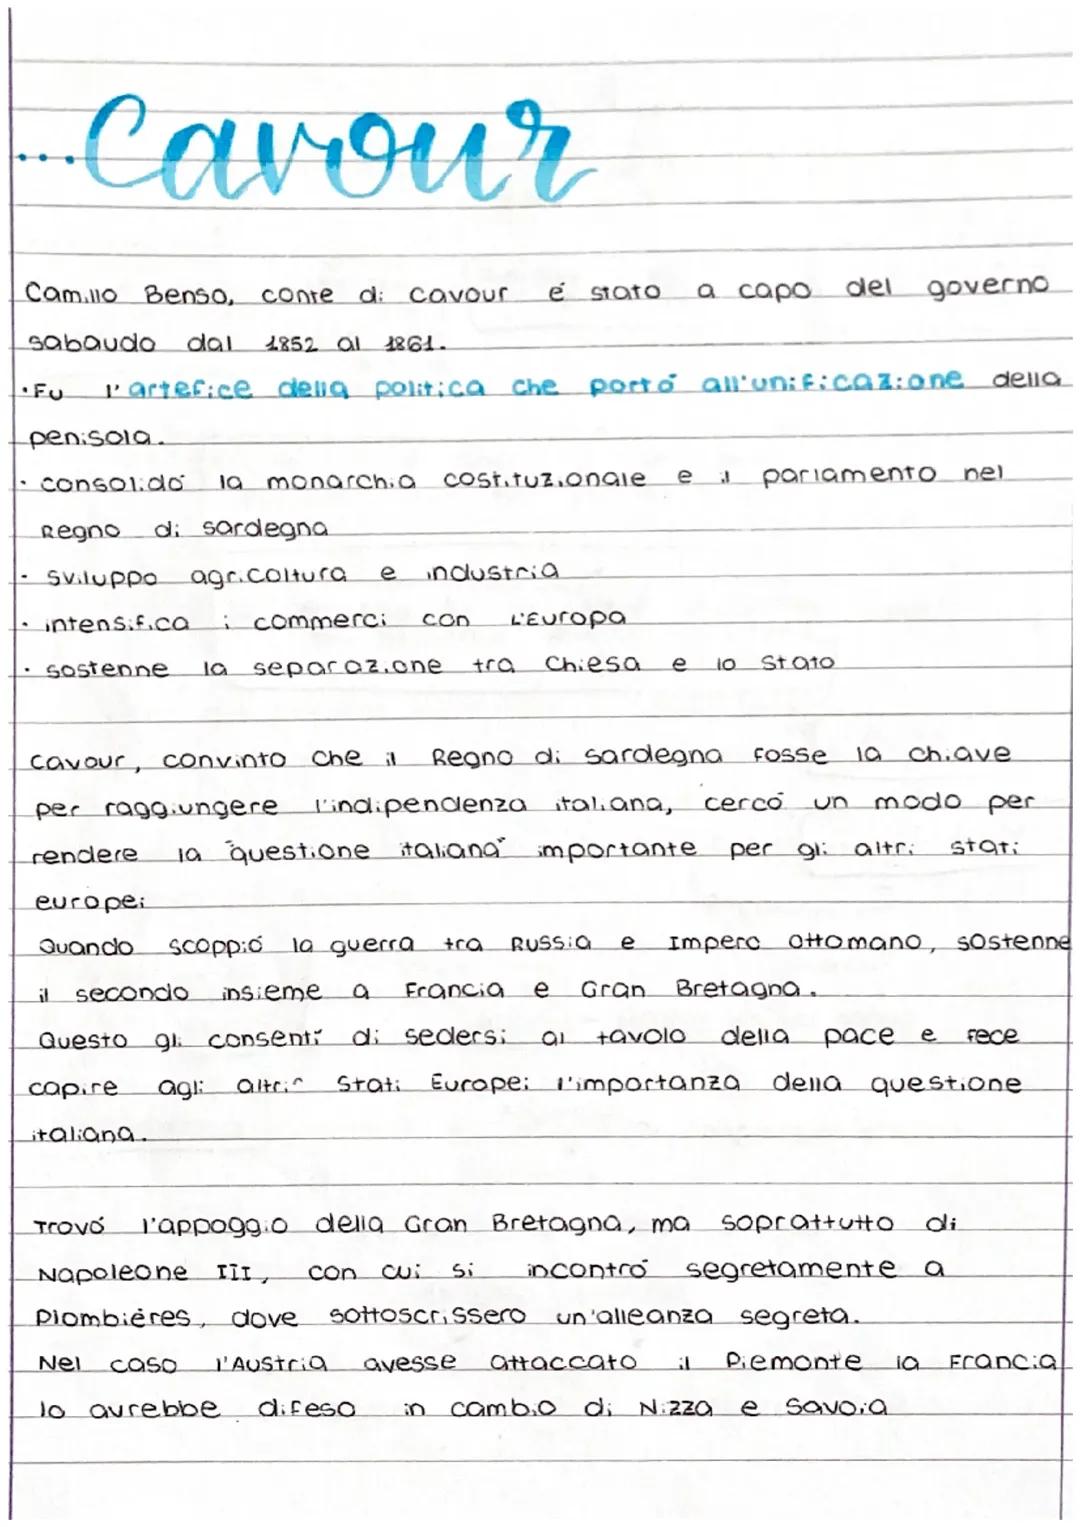 ...Cavour
Camillo Benso, conte di Cavour é stato a capo del governo
sabaudo dal 1852 al 1861.
·Fu l'artefice della politica che portó all'unificazione della
penisola.
· consolidó la monarchia costituzionale e il parlamento nel
Regno di sardegna
· sviluppo agricoltura e industria
· intensifica i commerci con l'Europa
· sostenne la separazione tra Chiesa e lo Stato
Cavour, convinto che il Regno di sardegna fosse la chiave
per raggiungere l'indipendenza italiana, cercó un modo per
rendere la "questione italiana" importante per gli altri stati
europei
Quando scoppió la guerra tra Russia e Impero Ottomano, sostenne
il secondo insieme a Francia e Gran Bretagna.
Questo gli consentí di sedersi al tavolo della pace e fece
capire agli altri Stati Europei l'importanza della questione
italiana.
Trovó l'appoggio della Gran Bretagna, ma soprattutto di
Napoleone III, con cui si incontró segretamente a
Plombiéres, dove sottoscrissero un'alleanza segreta.
Nel caso l'Austria avesse attaccato il Piemonte la Francia
lo avrebbe difeso in cambio di Nizza e Savoia